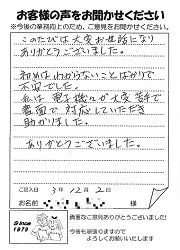 お客様の声をお聞かせください
※今後の業務向上のため、ご意見をお聞かせください。
このたびは大変お世話になり
ありがとうございました。
初めは分からないことばかりで
不安でした。
私は電子機器が大変苦手で
書面で対応していただき
助かりました。
ありがとうございました。
ご記入日 3年12月2日
お名前 様
貴重なご意見ありがとうございました!
今後も頑張りますので
よろしくお願いいたします
Since
1979